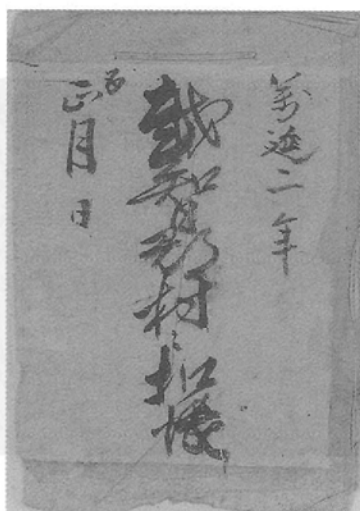 萬延二年
越智郡村々扣帳
酉正月日